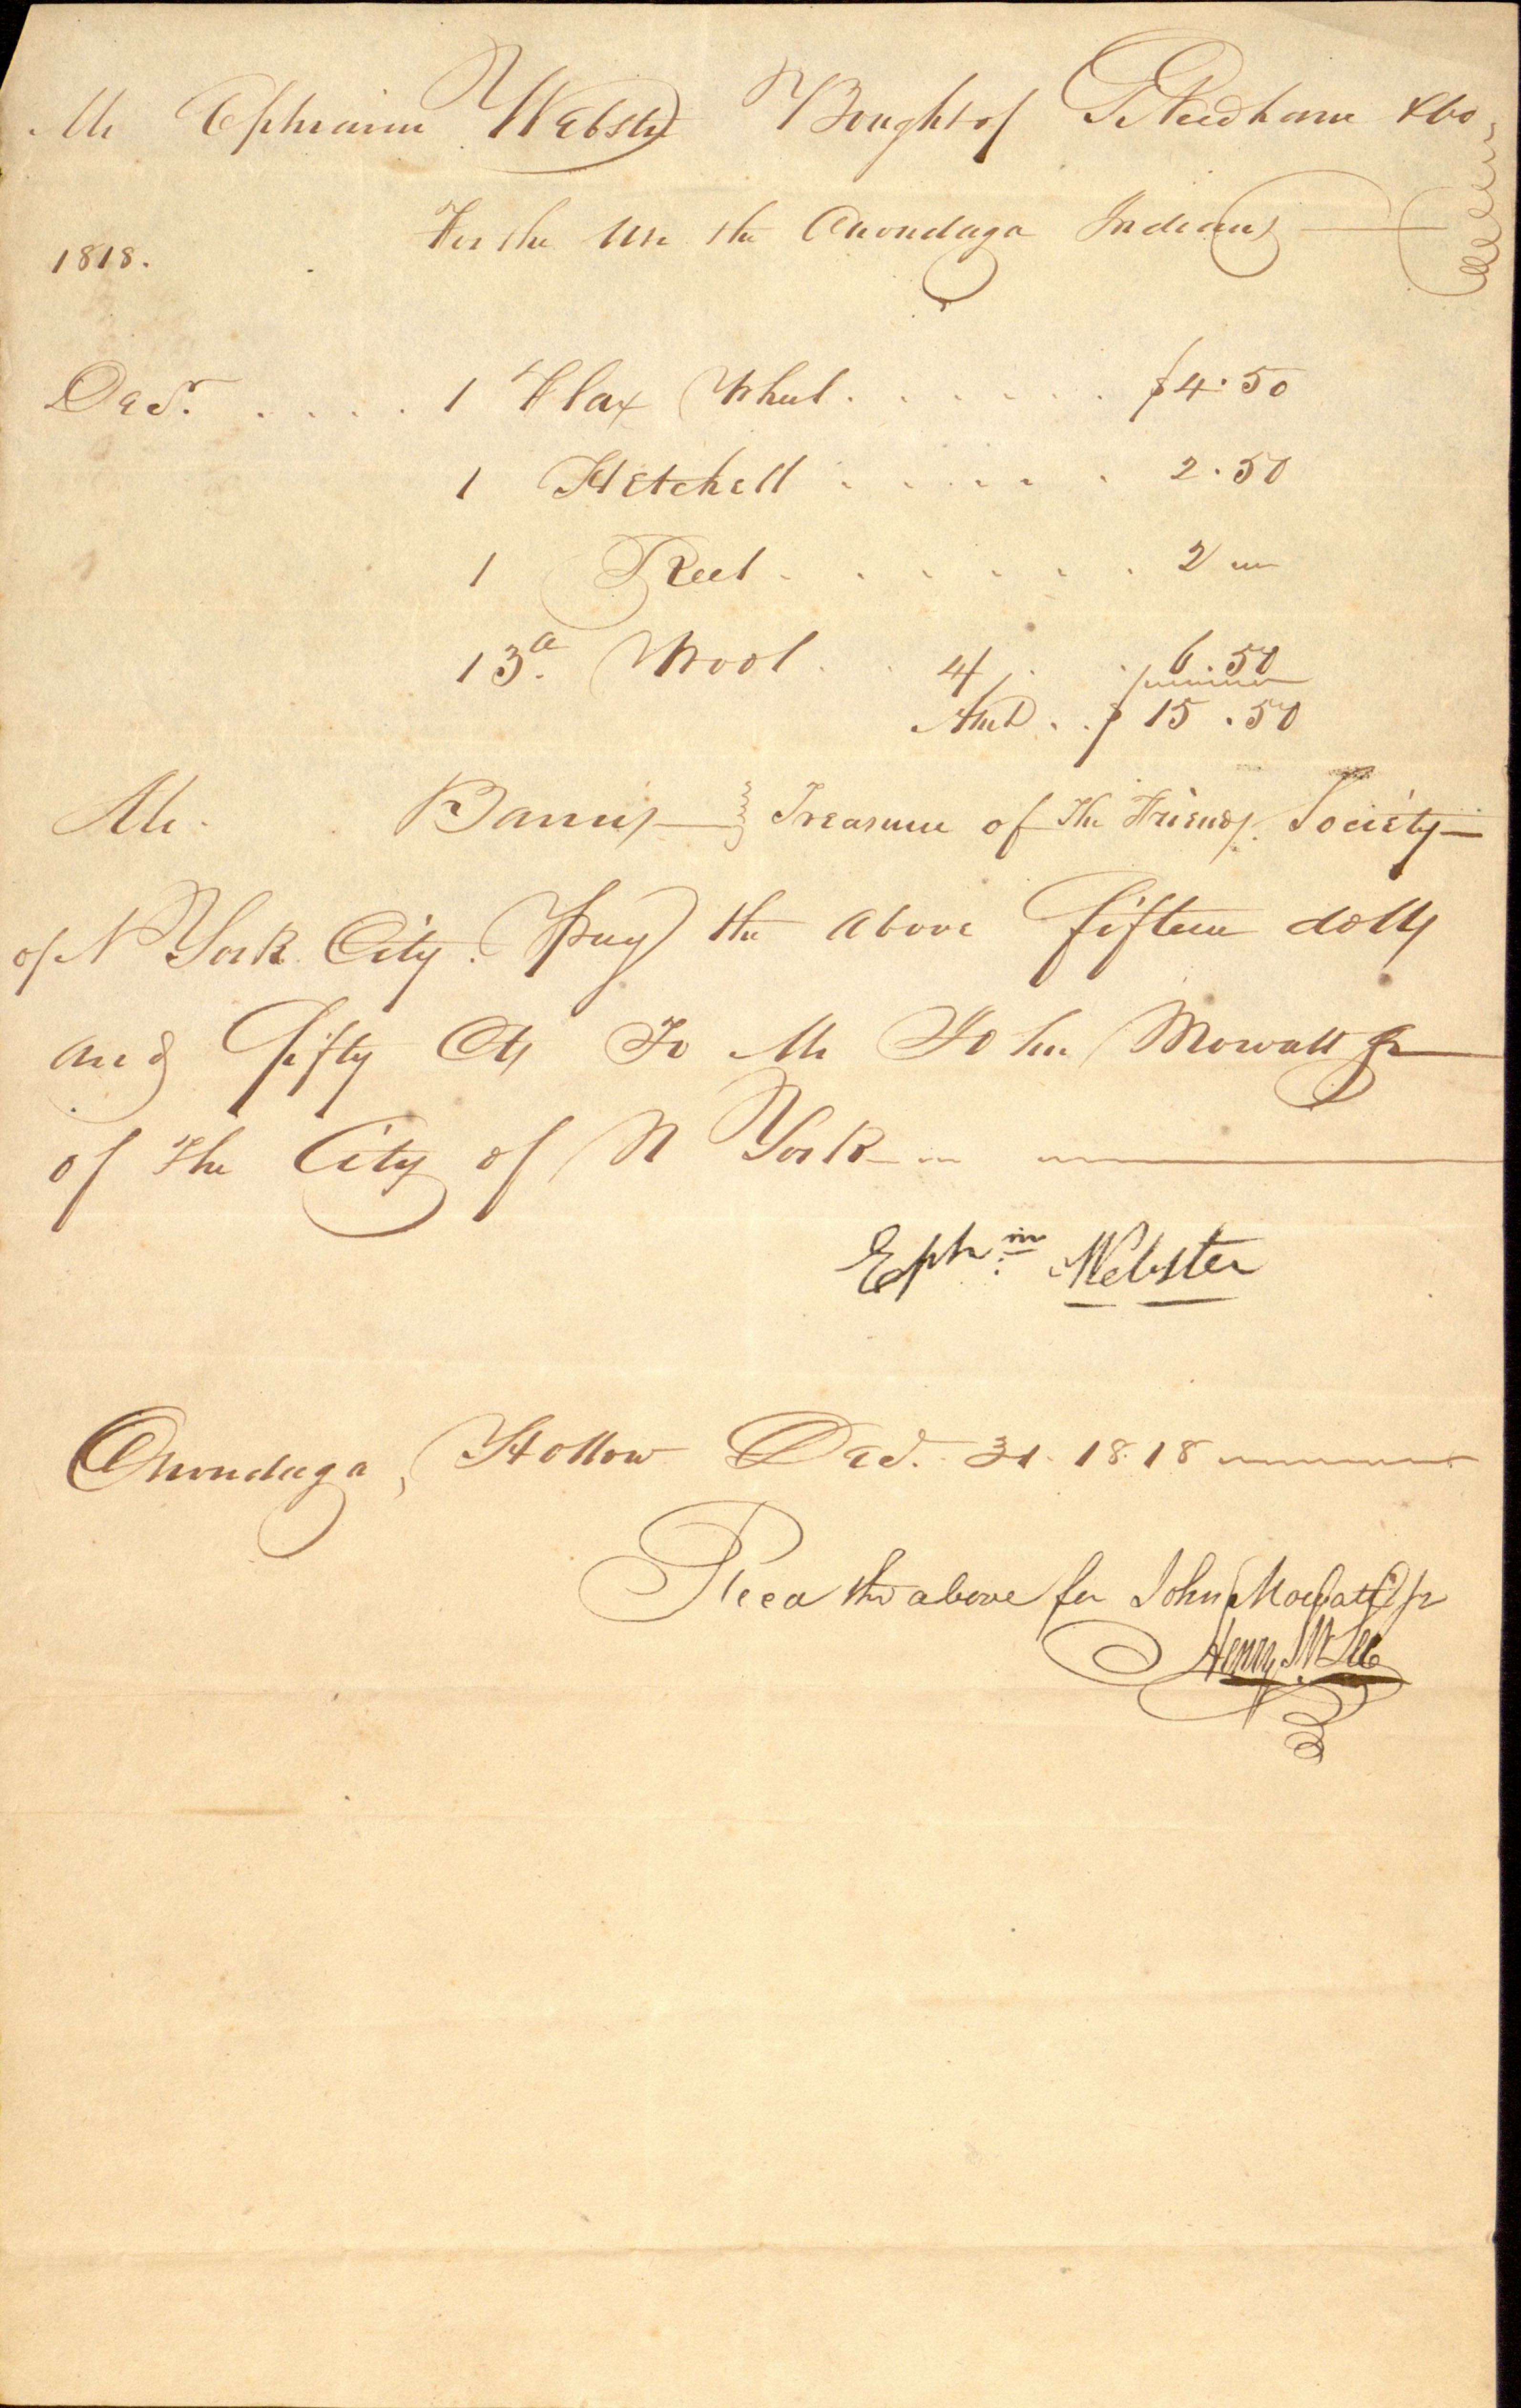 Mr Ephraim Webster Bought of G Needham & Co
For the Use the Onondaga Indians
1818.
Decr. . . . . 1 Flax Wheel . . . . . . $4.50
1 Hetchell . . . . . . 2.50
1 Reel . . . . . . . 2
13 Wool . . 4/ . . 6.50
Amt . . $15.50
Mr. Barns Treasurer of The Friends Society
of N York City. Pay the above fifteen dolls
and fifty Cts To Mr John Mowatt Jr
of The City of N York
Ephm Webster
Onondaga, Hollow Dec. 31. 1818
Recd the above for John Mowatt Jr
Henry W Lee